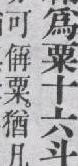 爲粟十六斗
可偁粟。猶凡